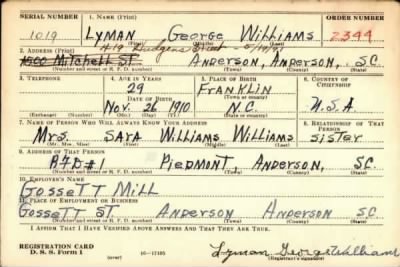 SERIAL NUMBER 1. NAME (Print) ORDER NUMBER
1019 LYMAN George Williams 2344
(First) (Middle) (Last)
2. ADDRESS (Print) 419 Hudgens Street - 5/19/41
1500 Mitchell ST. ANDERSON, ANDERSON, SC
(Number and street or R. F. D. number) (Town) (County) (State)
3. TELEPHONE 4. AGE IN YEARS 5. PLACE OF BIRTH 6. COUNTRY OF CITIZENSHIP
29 FRANKLIN
DATE OF BIRTH (Town or county)
Nov. 26 1910 N.C. U.S.A
(Exchange) (No.) (Mo.) (Day) (Yr.) (State or country)
7. NAME OF PERSON WHO WILL ALWAYS KNOW YOUR ADDRESS 8. RELATIONSHIP OF THAT PERSON
Mrs. SARA Williams Williams Sister
(Mr., Mrs., Miss) (First) (Middle) (Last)
9. ADDRESS OF THAT PERSON
RFD #1 Piedmont, Anderson, SC
(Number and street or R. F. D. number) (Town) (County) (State)
10. EMPLOYER'S NAME
GOSSETT Mill
11. PLACE OF EMPLOYMENT OR BUSINESS
Gossett ST ANDERSON ANDERSON SC
(Number and street or R. F. D. number) (Town) (County) (State)
I AFFIRM THAT I HAVE VERIFIED ABOVE ANSWERS AND THAT THEY ARE TRUE.
REGISTRATION CARD
D. S. S. Form 1 (over) 16-17105 Lyman George Williams
(Registrant's signature)